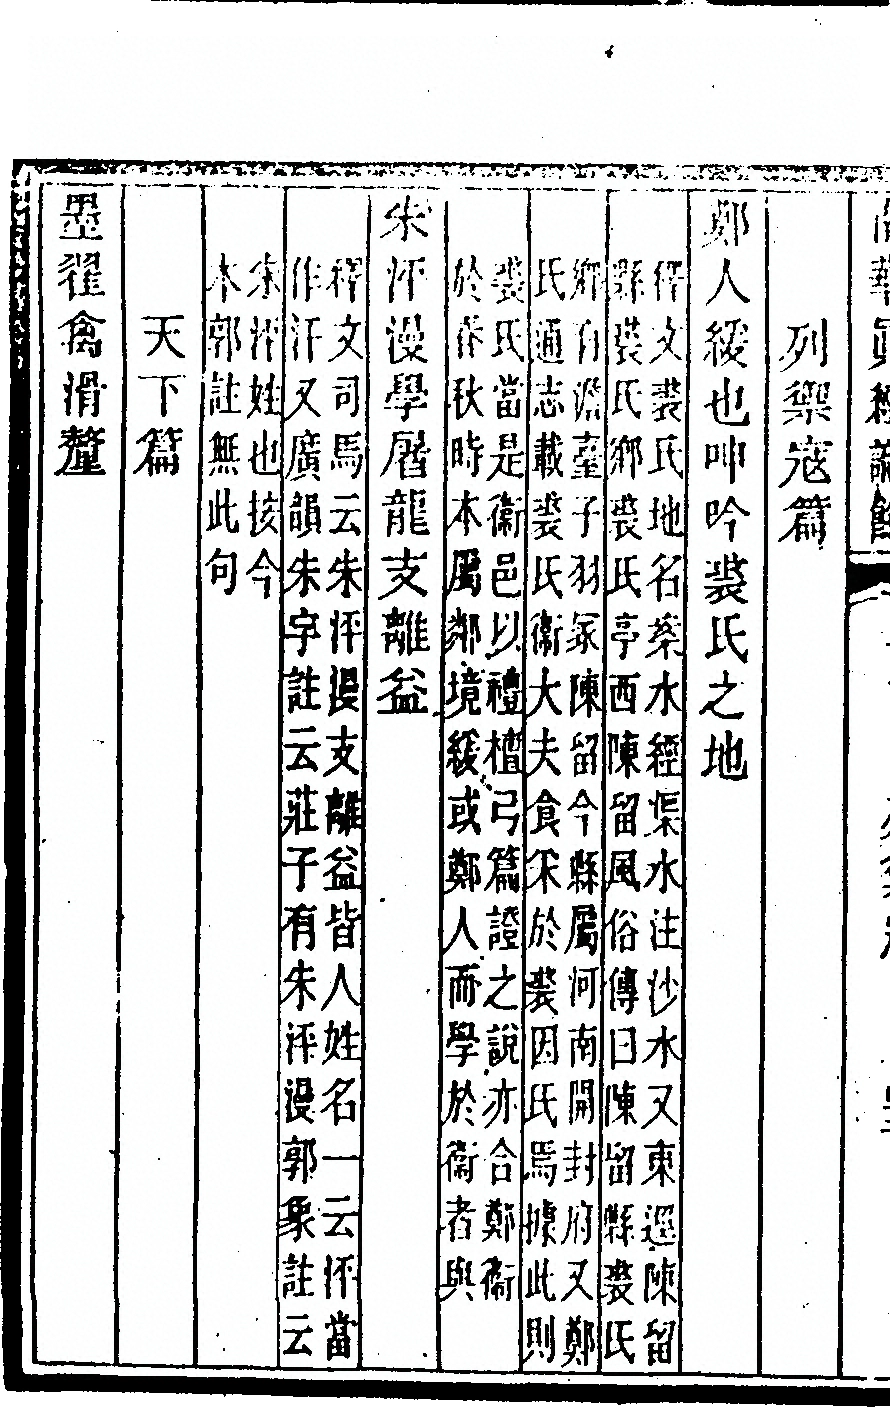 南華眞經識餘
列禦寇篇
鄭人緩也呻吟裘氏之地
釋文裘氏地名案水經渠水注沙水又東逕陳留
縣裘氏鄉裘氏亭西陳留風俗傳曰陳留縣裘氏
鄉有澹臺子羽冢陳留今縣屬河南開封府又鄭
氏通志載裘氏衞大夫食采於裘因氏焉據此則
裘氏當是衞邑以禮檀弓篇證之說亦合鄭衞
於春秋時本屬鄰境緩或鄭人而學於衞者與
朱泙漫學屠龍支離益
釋文司馬云朱泙漫支離益皆人姓名一云泙當
作汗又廣韻朱字註云莊子有朱泙漫郭象註云
朱泙姓也按今
本郭註無此句
天下篇
墨翟禽滑釐